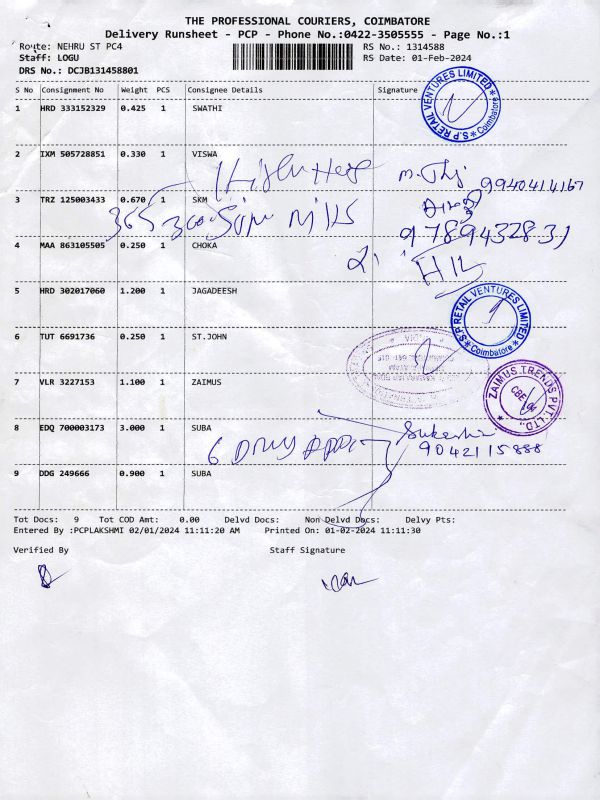 THE PROFESSIONAL COURIERS, COIMBATORE
Delivery Runsheet - PCP - Phone No.:0422-3505555 - Page No.:1
Route: NEHRU ST PC4 RS No.: 1314588
Staff: LOGU RS Date: 01-Feb-2024
DRS No.: DCJB131458801
S No Consignment No Weight PCS Consignee Details Signature
1 HRD 333152329 0.425 1 SWATHI
S.P RETAIL VENTURES LIMITED * Coimbatore *
2 IXM 505728851 0.330 1 VISWA
9940414167
3 TRZ 125003433 0.670 1 SKM
365 300 Mills
9789432831
4 MAA 863105505 0.250 1 CHOKA
5 HRD 302017060 1.200 1 JAGADEESH
S.P RETAIL VENTURES LIMITED * Coimbatore *
6 TUT 6691736 0.250 1 ST.JOHN
7 VLR 3227153 1.100 1 ZAIMUS
ZAIMUS TRENDS PVT. LTD.,
CBE
8 EDQ 700003173 3.000 1 SUBA
9042115888
9 DDG 249666 0.900 1 SUBA
Tot Docs: 9 Tot COD Amt: 0.00 Delvd Docs: Non Delvd Docs: Delvy Pts:
Entered By :PCPLAKSHMI 02/01/2024 11:11:20 AM Printed On: 01-02-2024 11:11:30
Verified By Staff Signature